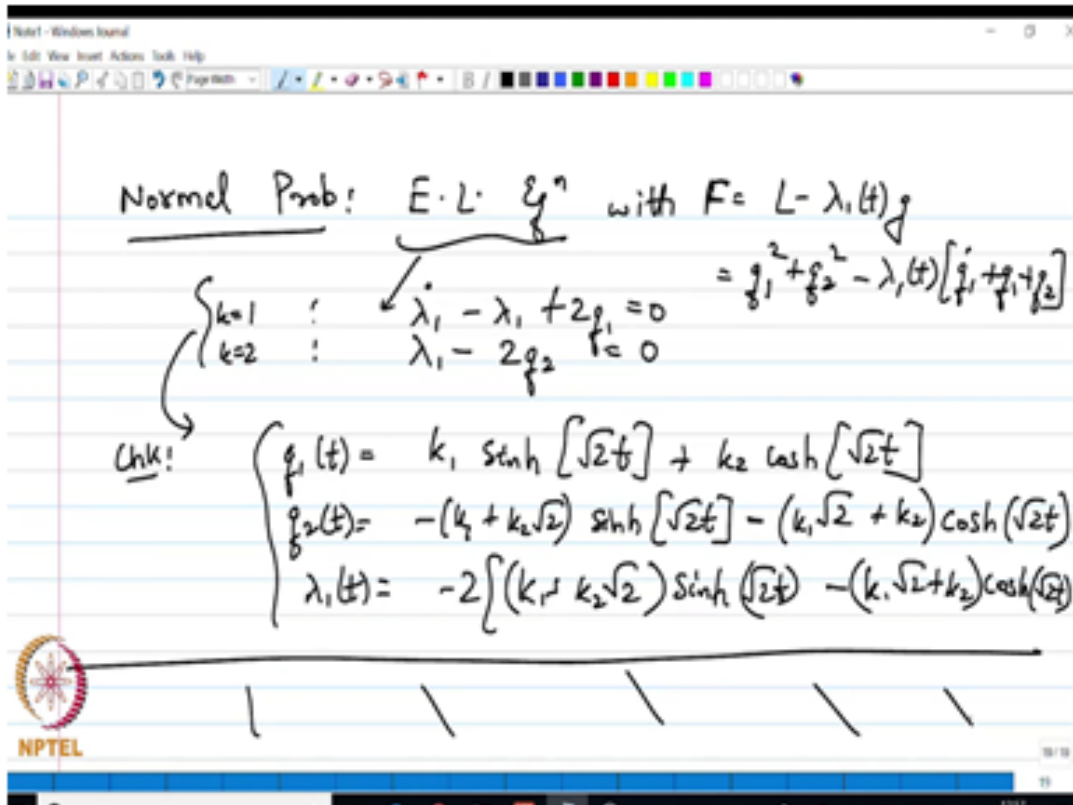 Note1 - Windows Journal
Edit View Insert Actions Tools Help
Page Width B I
Normal Prob! E.L. Eqⁿ with F = L - λ₁(t) g
= q₁² + q₂² - λ₁(t) [q̇₁ + q₁ + q₂]
k=1 : λ̇₁ - λ₁ + 2q₁ = 0
k=2 : λ₁ - 2q₂ = 0
Chk! q₁(t) = k₁ sinh [√2t] + k₂ cosh [√2t]
q₂(t) = -(k₁ + k₂√2) sinh [√2t] - (k₁√2 + k₂) cosh (√2t)
λ₁(t) = -2[(k₁ + k₂√2) sinh (√2t) - (k₁√2 + k₂) cosh (√2t)
NPTEL
19